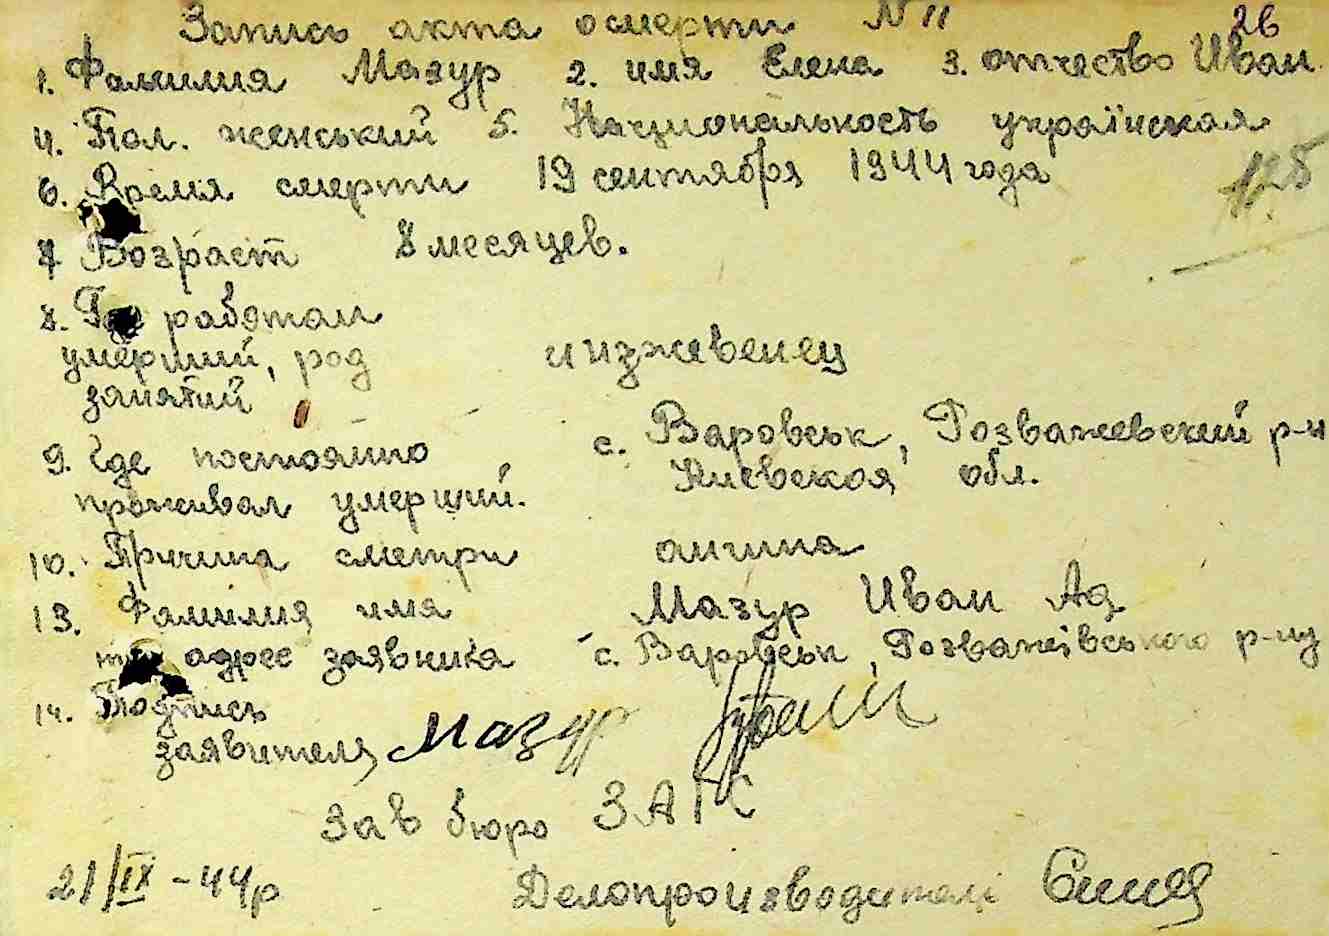 Запись акта осмерти N 11
26
1. Фамилия Мазур 2. имя Елена 3. отчество Иван
4. Пол. женський 5. Национальность українская
6. Время смерти 19 сентября 1944 года
125
7 Возраст 8 месяцев.
8. Где работал
умерший, род иижевенец
занятий
9. Где постоянно с. Варовськ, Розважевский р-н
проживал умерший. Киевская обл.
10. Причина сметри ангина
13. Фамилия имя Мазур Иван Ад
адрес заявника с. Варовськ, Розважівського р-ну
14. Подпись
заявителя Мазур Іван
Зав бюро ЗАГС
21/IX-44р Делопроизводителі